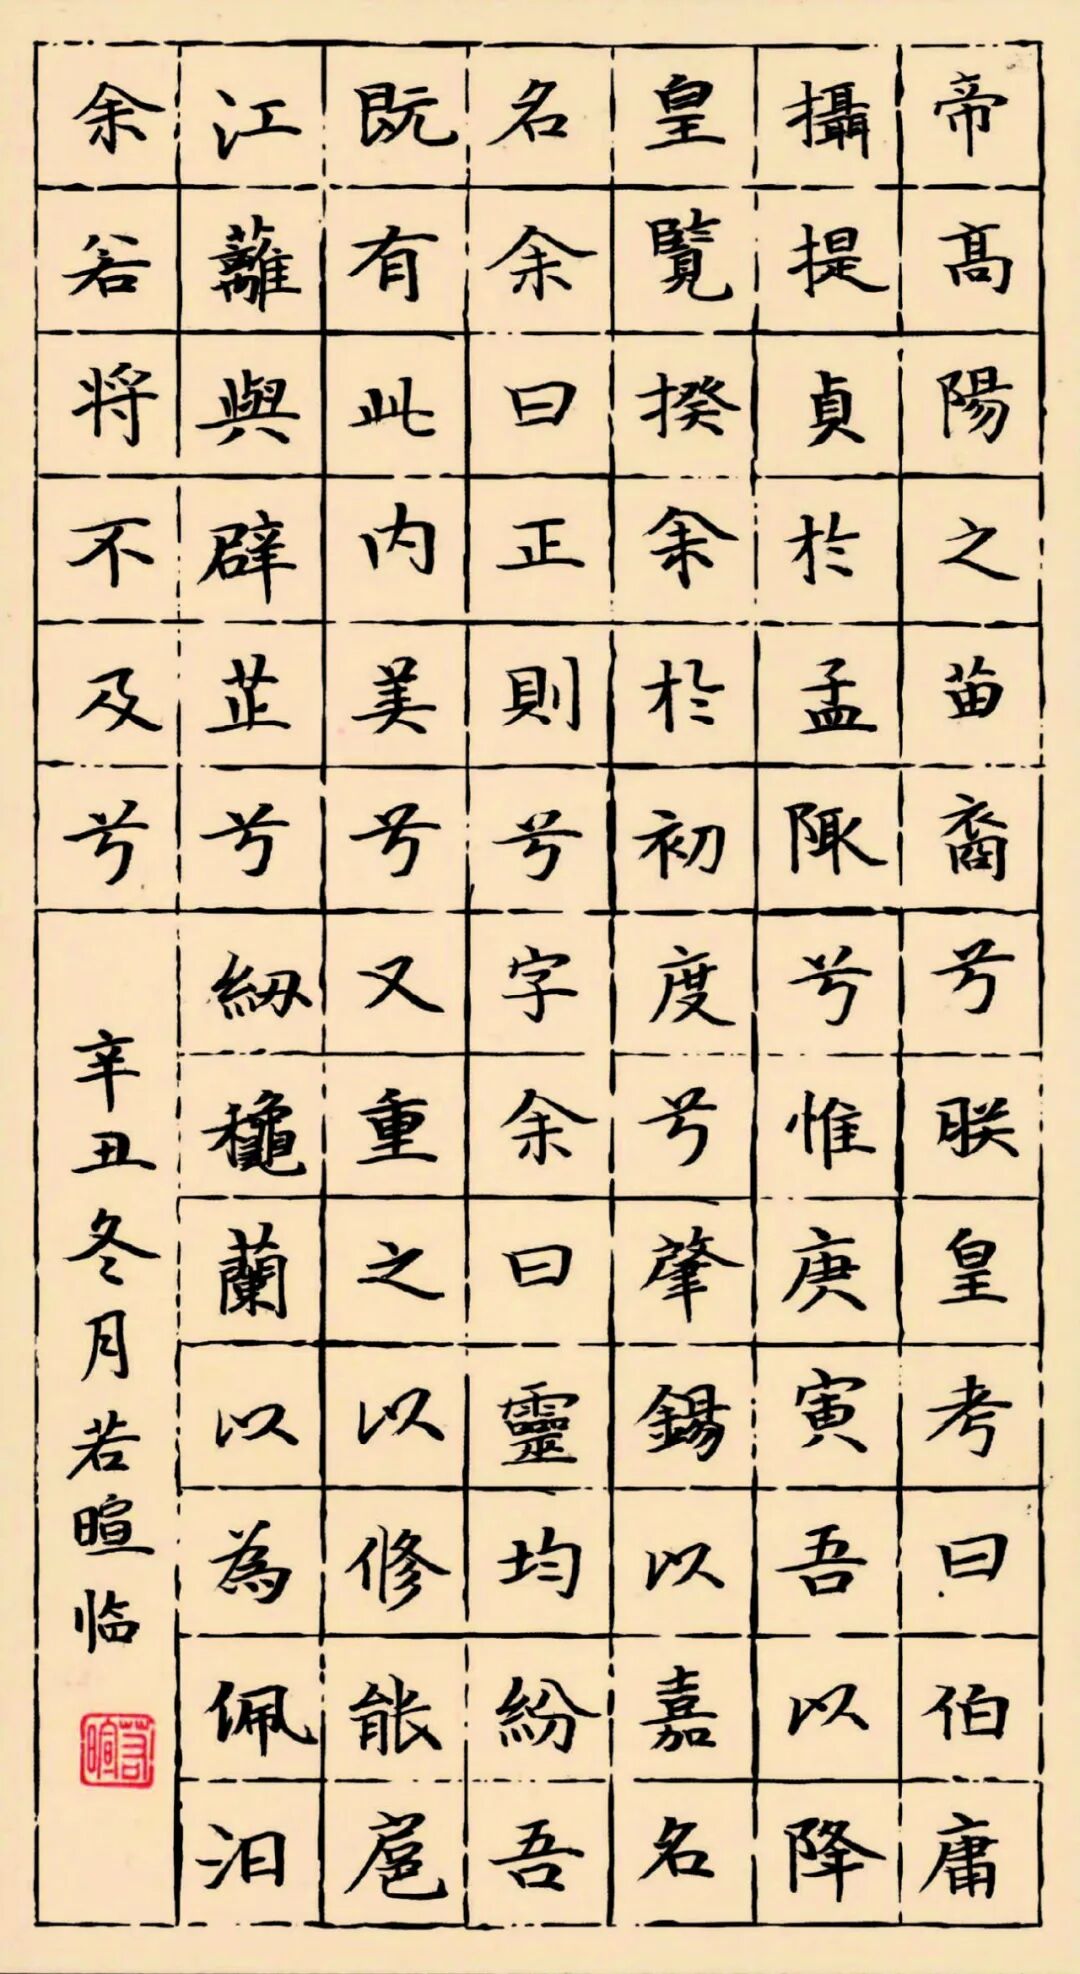 帝高陽之苗裔兮朕皇考曰伯庸
攝提貞於孟陬兮惟庚寅吾以降
皇覽揆余於初度兮肇錫以嘉名
名余曰正則兮字余曰靈均紛吾
既有此内美兮又重之以修能扈
江蘺與辟芷兮紉穐蘭以為佩汩
余若将不及兮
辛丑冬月若暄临
若暄